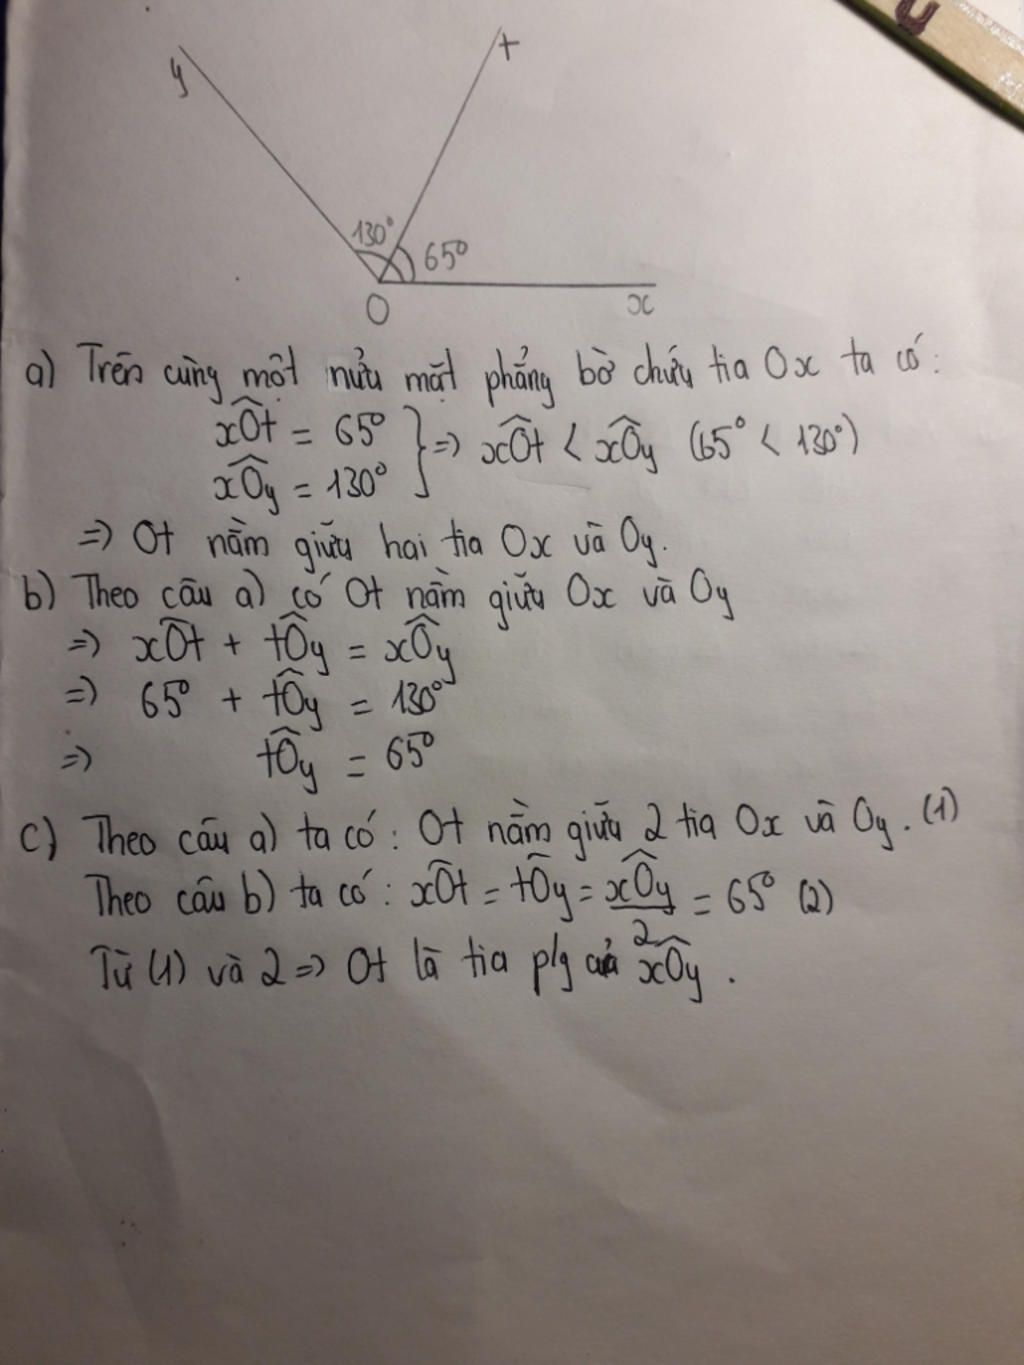 U
y
t
130°
65°
O
x
a) Trên cùng một nửa mặt phẳng bờ chứa tia Ox ta có:
xÔt = 65°
xÔy = 130° } => xÔt < xÔy (65° < 130°)
=> Ot nằm giữa hai tia Ox và Oy.
b) Theo câu a) có Ot nằm giữa Ox và Oy
=> xÔt + tÔy = xÔy
=> 65° + tÔy = 130°
=> tÔy = 65°
c) Theo câu a) ta có: Ot nằm giữa 2 tia Ox và Oy. (1)
Theo câu b) ta có: xÔt = tÔy = xÔy/2 = 65° (2)
Từ (1) và 2 => Ot là tia p/g của xÔy.